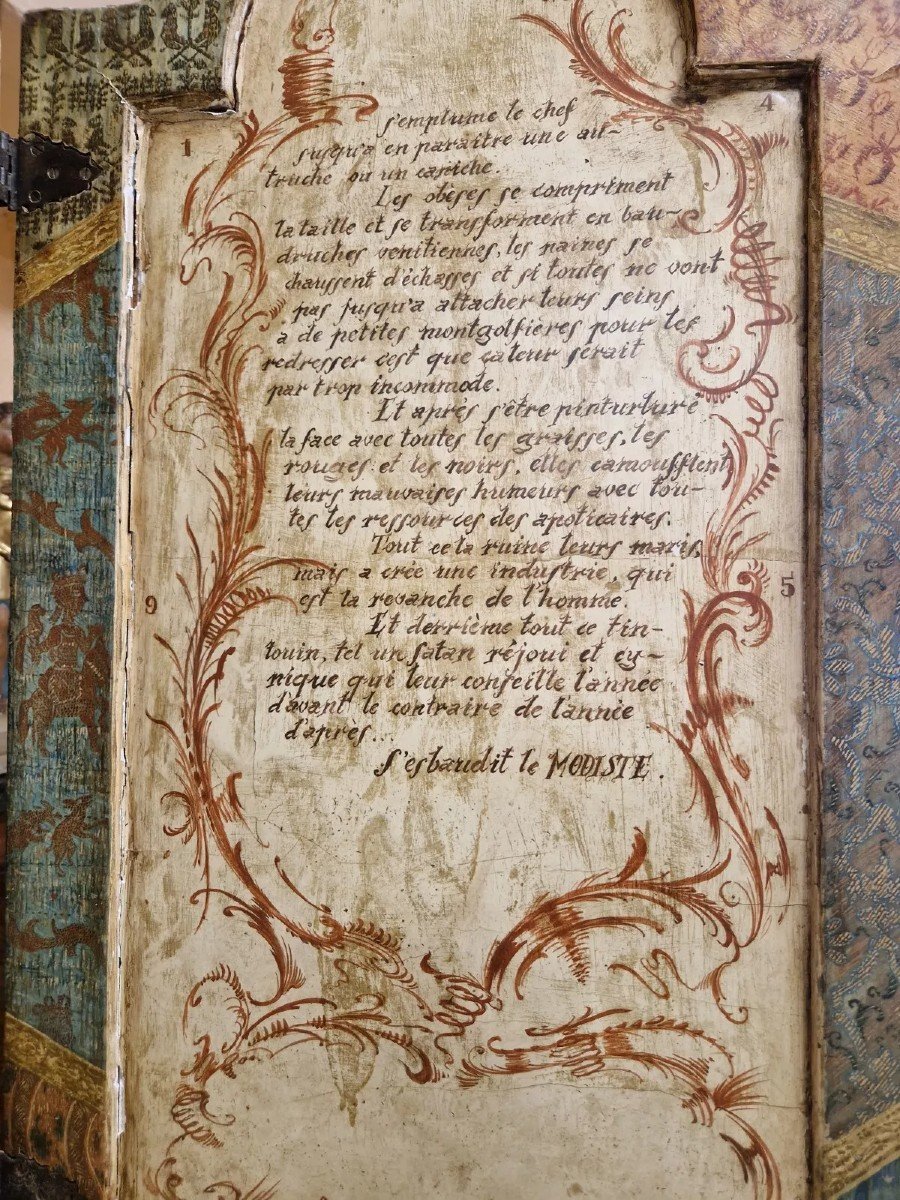 1
4
s'emplume le chef
jusqu'a en paraitre une au-
truche ou un caniche.
Les obèses se compriment
la taille et se transforment en bau-
druches venitiennes, les naines se
chaussent d'échasses et si toutes ne vont
pas jusqu'a attacher leurs seins
a de petites montgolfières pour les
redresser c'est que ça leur serait
par trop incommode.
Et après s'être pinturluré
la face avec toutes les graisses, les
rouges et les noirs, elles camoufflent
leurs mauvaises humeurs avec tou-
tes les ressources des apoticaires.
Tout cela ruine leurs maris
mais a crée une industrie, qui
9
5
est la revanche de l'homme.
Et derrième tout ce tin-
touin, tel un satan réjoui et cy-
nique qui leur conseille l'année
d'avant le contraire de l'année
d'après...
S'esbaudit le MODISTE.